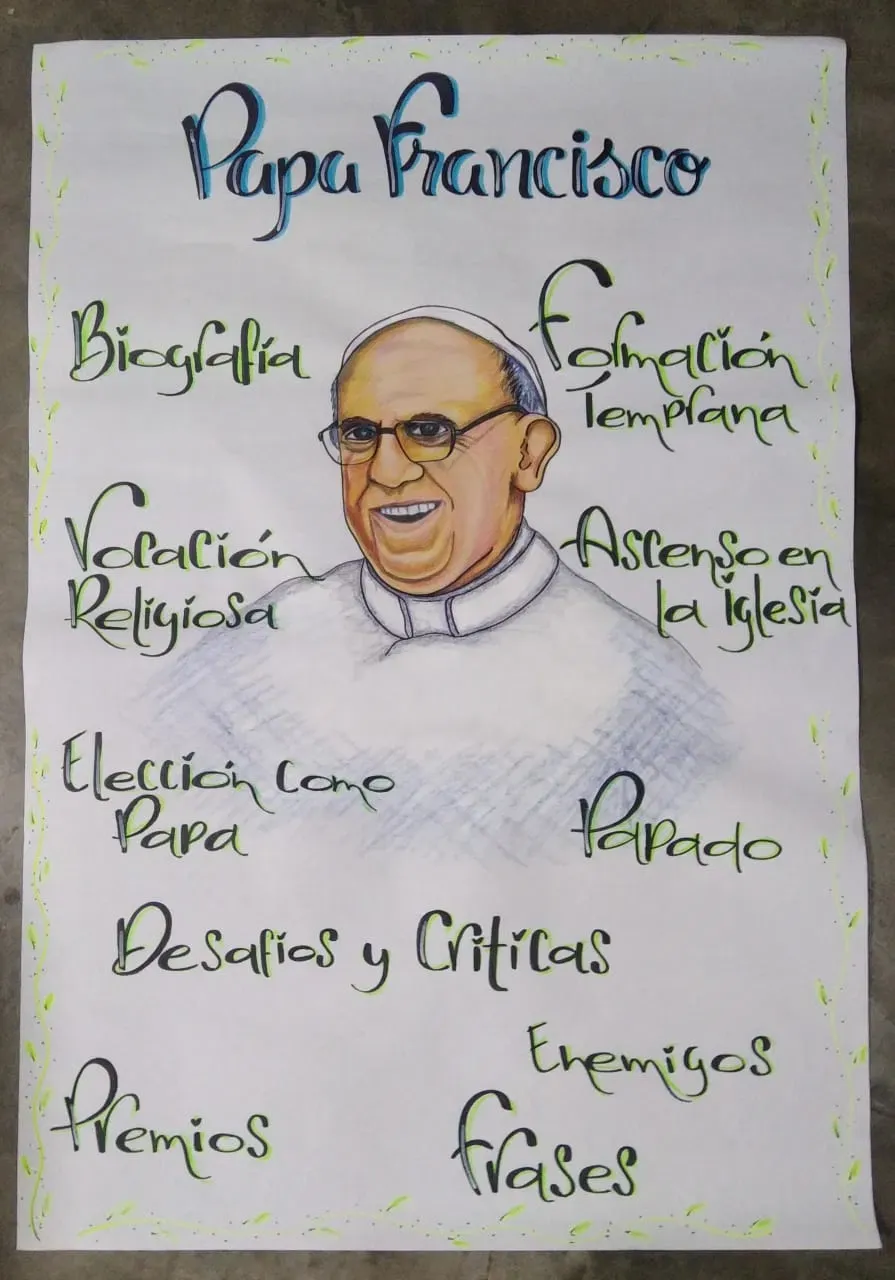 Papa Francisco
Biografía
Formación
Temprana
Vocación
Religiosa
Ascenso en
la Iglesia
Elección como
Papa
Papado
Desafíos y Críticas
Enemigos
Premios
Frases